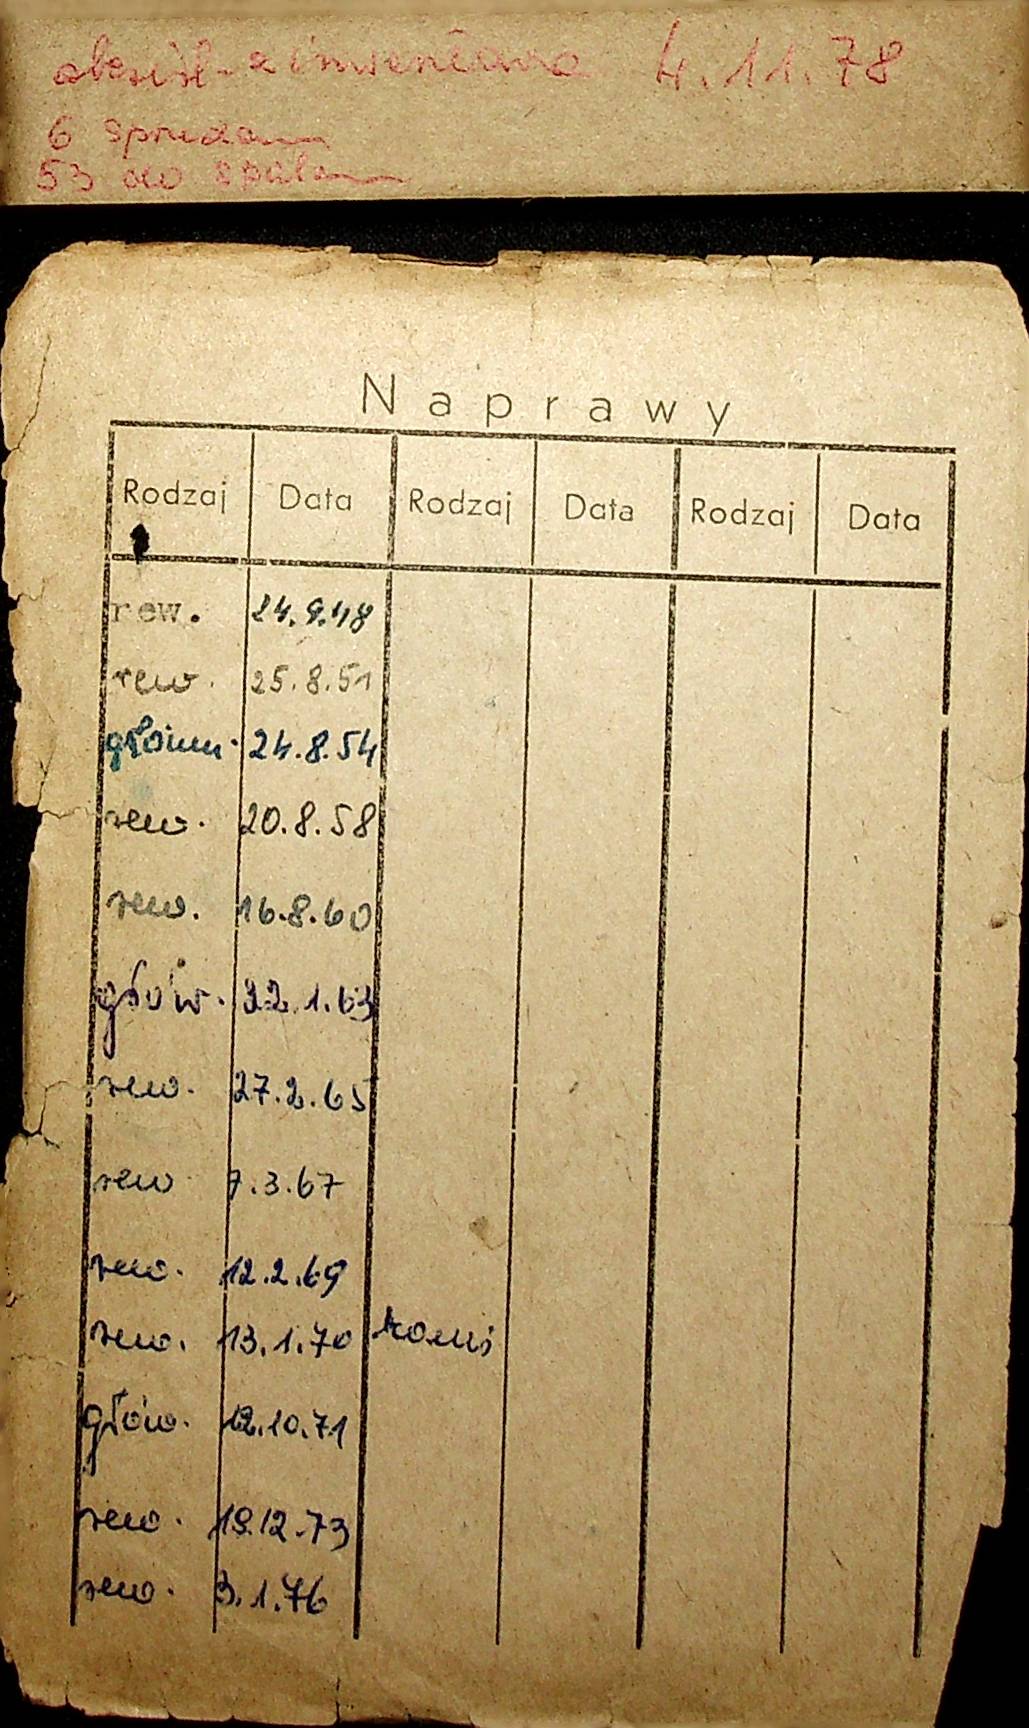 skreśl. z inwentarza 4.11.78
6 sprzedam
53 do spalam
Naprawy
Rodzaj Data Rodzaj Data Rodzaj Data
rew. 24.9.48
rew. 25.8.51
główn. 24.8.54
rew. 20.8.58
rew. 16.8.60
głów. 22.1.63
rew. 27.2.65
rew 7.3.67
rew. 12.2.69
rew. 13.1.70
głów. 12.10.71
rew. 19.12.73
rew. 3.1.76